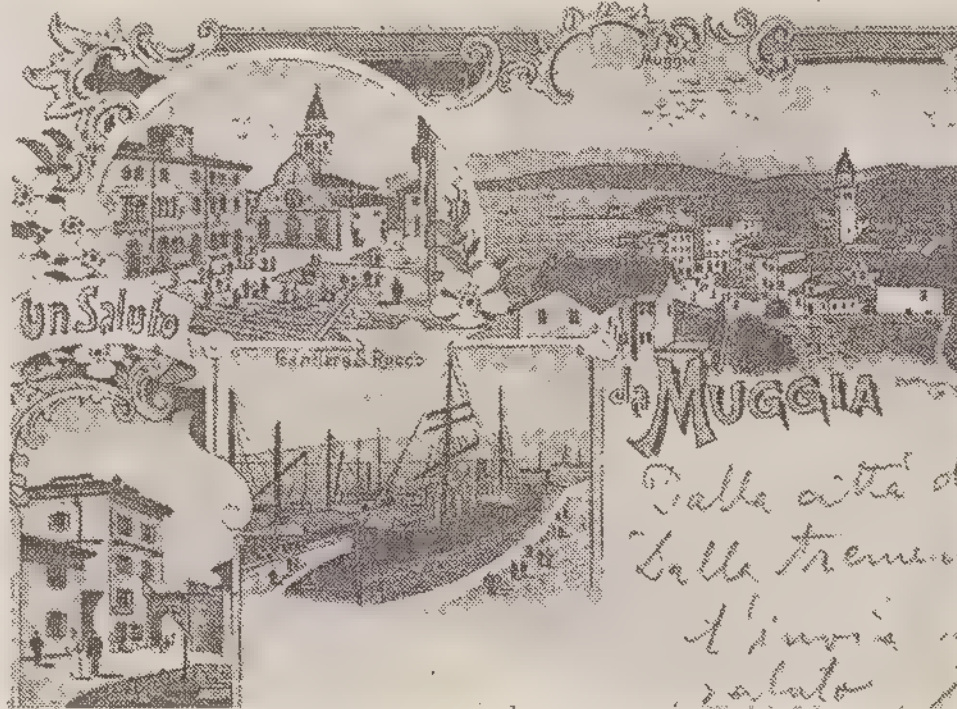 Muggia
un Saluto
Cantiere S. Rocco
da MUGGIA
Dalla città
Dalla
saluto